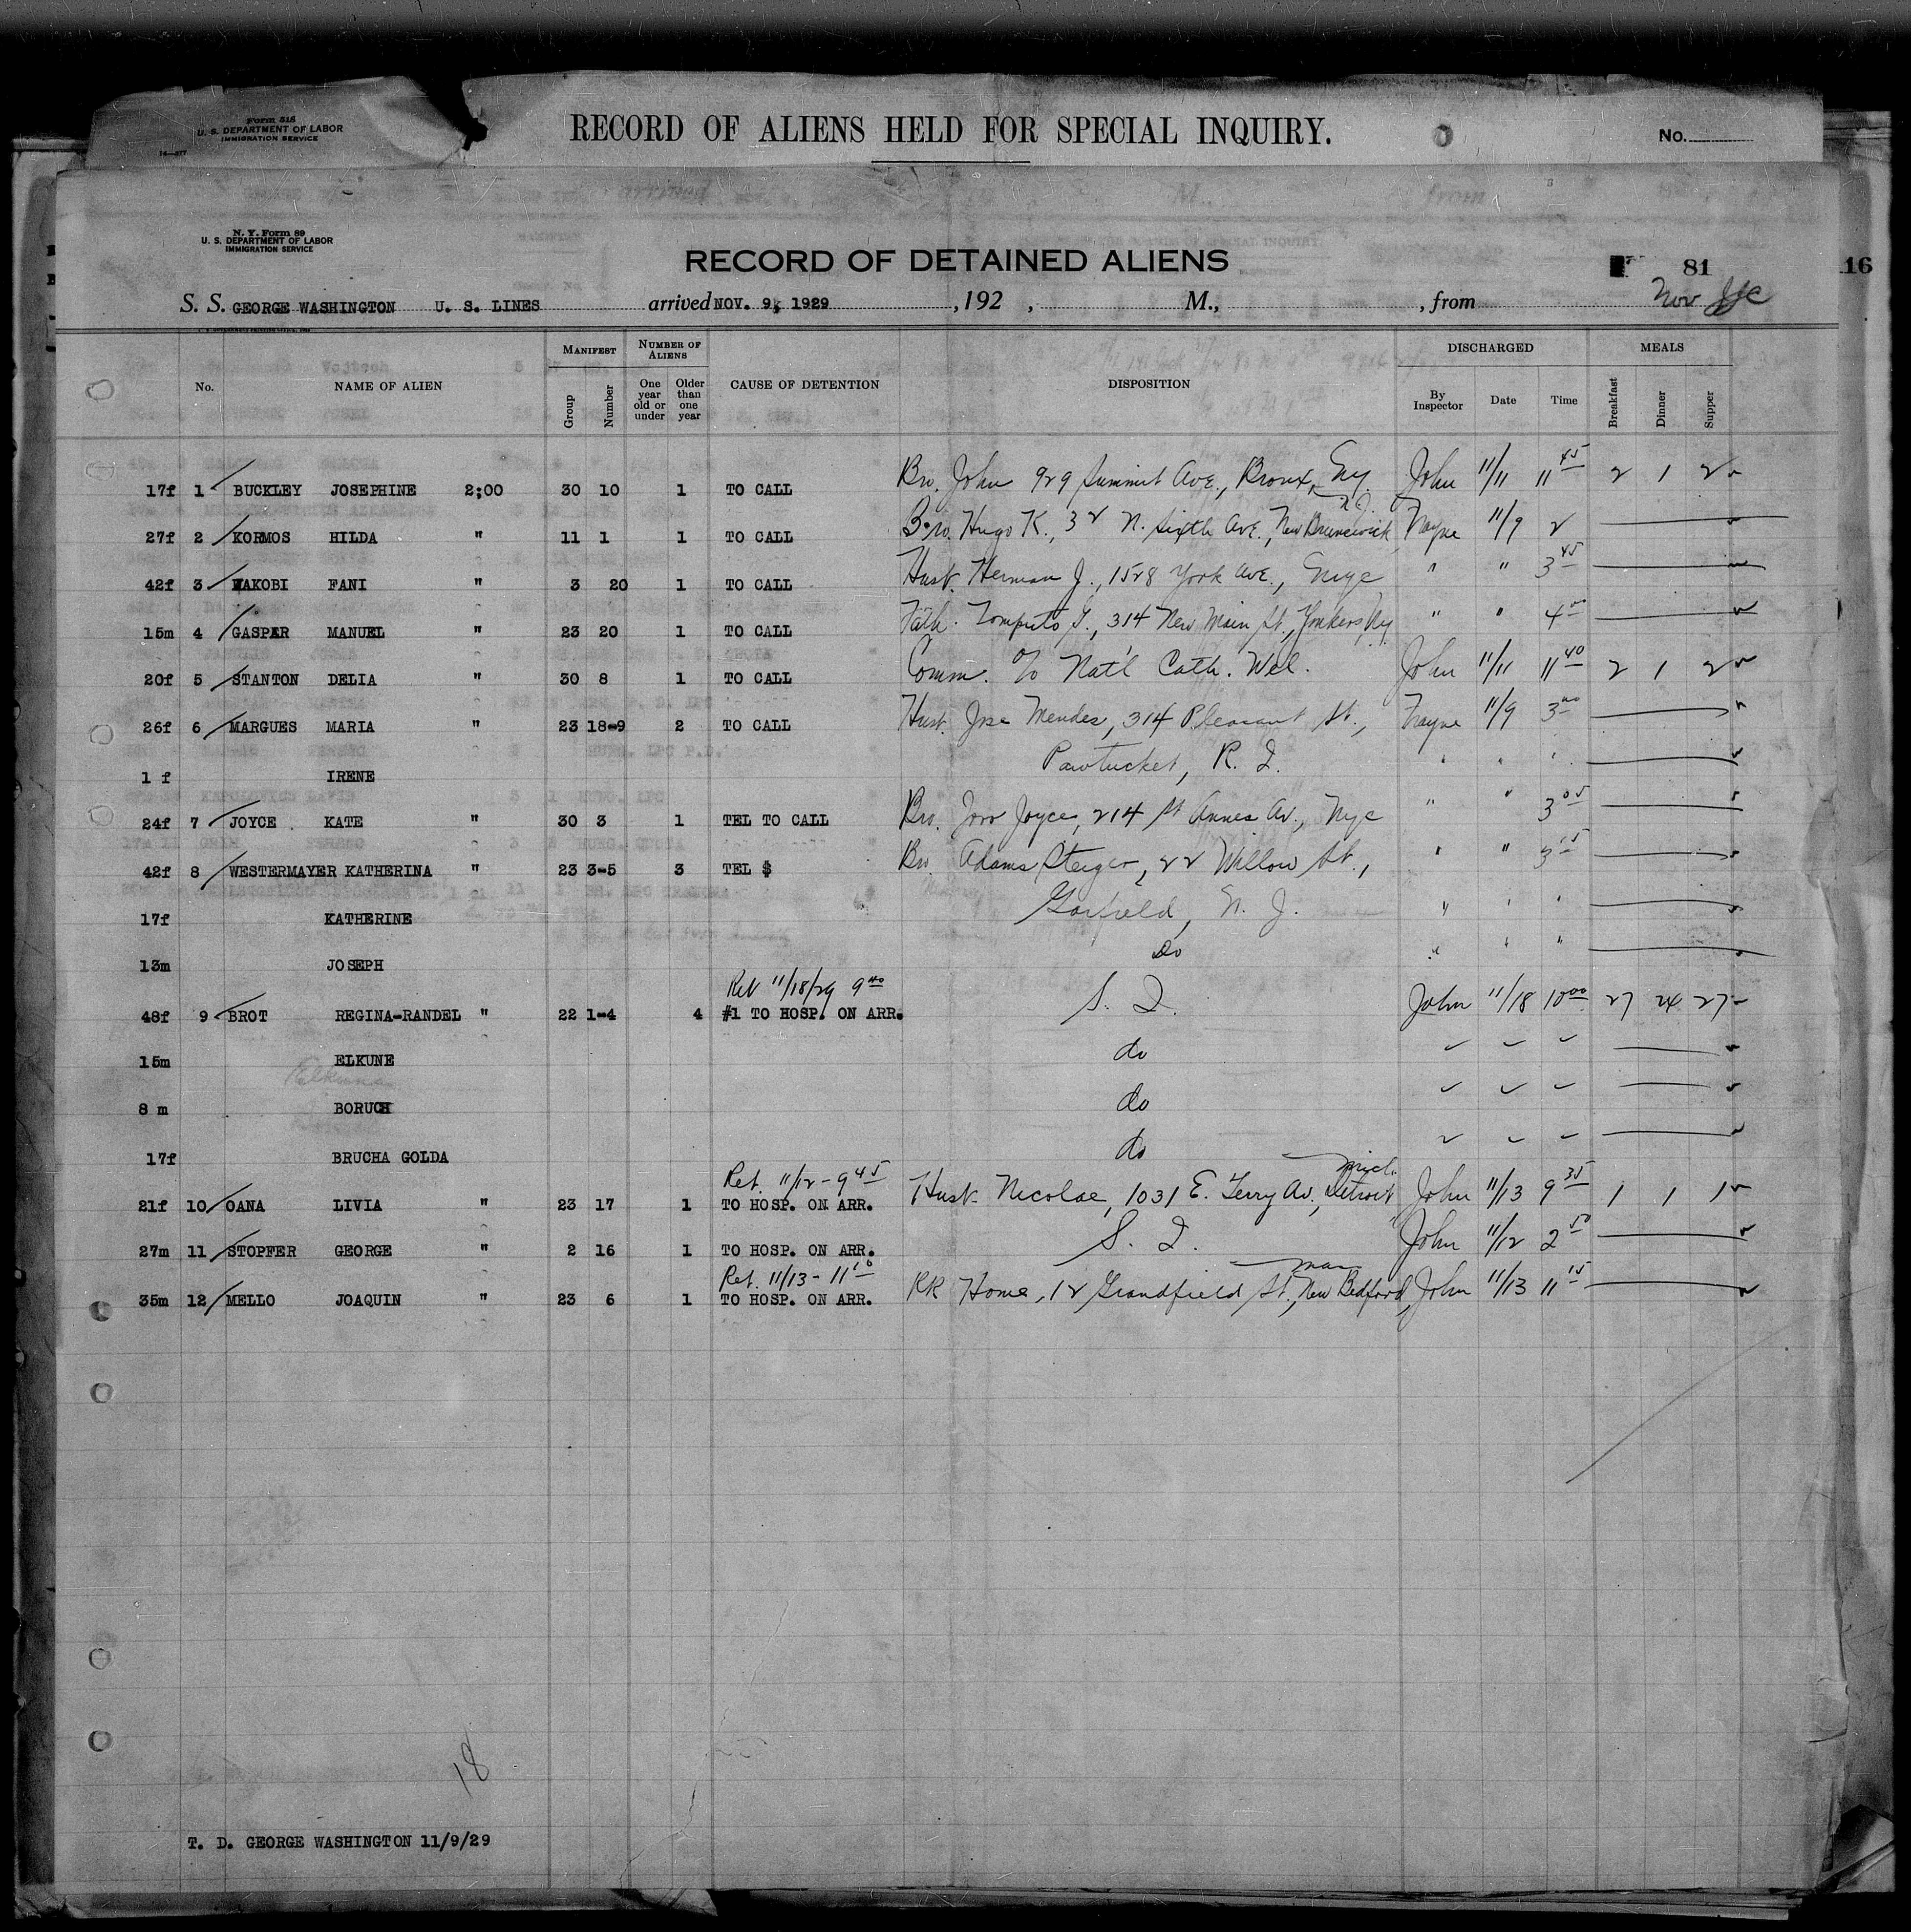 Form 518
U. S. DEPARTMENT OF LABOR
IMMIGRATION SERVICE
RECORD OF ALIENS HELD FOR SPECIAL INQUIRY.
No.
N. Y. Form 89
U. S. DEPARTMENT OF LABOR
IMMIGRATION SERVICE
RECORD OF DETAINED ALIENS
81
16
S. S. GEORGE WASHINGTON U. S. LINES arrived NOV. 9, 1929 , 192 , M., , from
Nov
No. NAME OF ALIEN MANIFEST Group Number NUMBER OF ALIENS One year old or under Older than one year CAUSE OF DETENTION DISPOSITION DISCHARGED By Inspector Date Time MEALS Breakfast Dinner Supper
17f 1 BUCKLEY JOSEPHINE 2;00 30 10 1 TO CALL Bro. John 929 Summit Ave., Bronx, Ny John 11/11 11 45 2 1 2
27f 2 KORMOS HILDA " 11 1 1 TO CALL Bro. Hugo K., 32 N. Sixth Ave., New Brunswick N.J. 11/9 2
42f 3 JAKOBI FANI " 3 20 1 TO CALL Husb. Herman J., 1528 York Ave., Nyc " " 3 45
15m 4 GASPAR MANUEL " 23 20 1 TO CALL Fath. G., 314 New Main St., Yonkers, Ny " " 4 00
20f 5 STANTON DELIA " 30 8 1 TO CALL Comm. c/o Nat'l Cath. Wel. John 11/11 11 40 2 1 2
26f 6 MARGUES MARIA " 23 18-9 2 TO CALL Husb. Jose Mendes, 314 Pleasant St., 11/9 3 00
1 f IRENE Pawtucket, R. I. " " "
24f 7 JOYCE KATE " 30 3 1 TEL TO CALL Bro. Joyce, 214 St Annes Av., Nyc " " 3 05
42f 8 WESTERMAYER KATHERINA " 23 3-5 3 TEL $ Bro. Adams Steiger, 22 Willow St., " " 3 15
17f KATHERINE Garfield, N. J. " " "
13m JOSEPH do " " "
Ret 11/18/29 9 40
48f 9 BROT REGINA-RANDEL " 22 1-4 4 #1 TO HOSP. ON ARR. S. I. John 11/18 10 00 27 24 27
15m ELKUNE do
Elkuna
8 m BORUCH do
17f BRUCHA GOLDA do
Ret. 11/12 - 9 45
21f 10 OANA LIVIA " 23 17 1 TO HOSP. ON ARR. Husb Nicolae, 1031 E. Ferry Av., Detroit Mich. John 11/13 9 35 1 1 1
27m 11 STOPFER GEORGE " 2 16 1 TO HOSP. ON ARR. S. I. John 11/12 2 50
Ret. 11/13 - 11 10
35m 12 MELLO JOAQUIN " 23 6 1 TO HOSP. ON ARR. RR Home, 12 Grandfield St., New Bedford, Mass John 11/13 11 15
18
T. D. GEORGE WASHINGTON 11/9/29